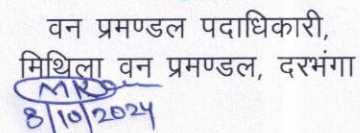 वन प्रमण्डल पदाधिकारी,
मिथिला वन प्रमण्डल, दरभंगा
8/10/2024